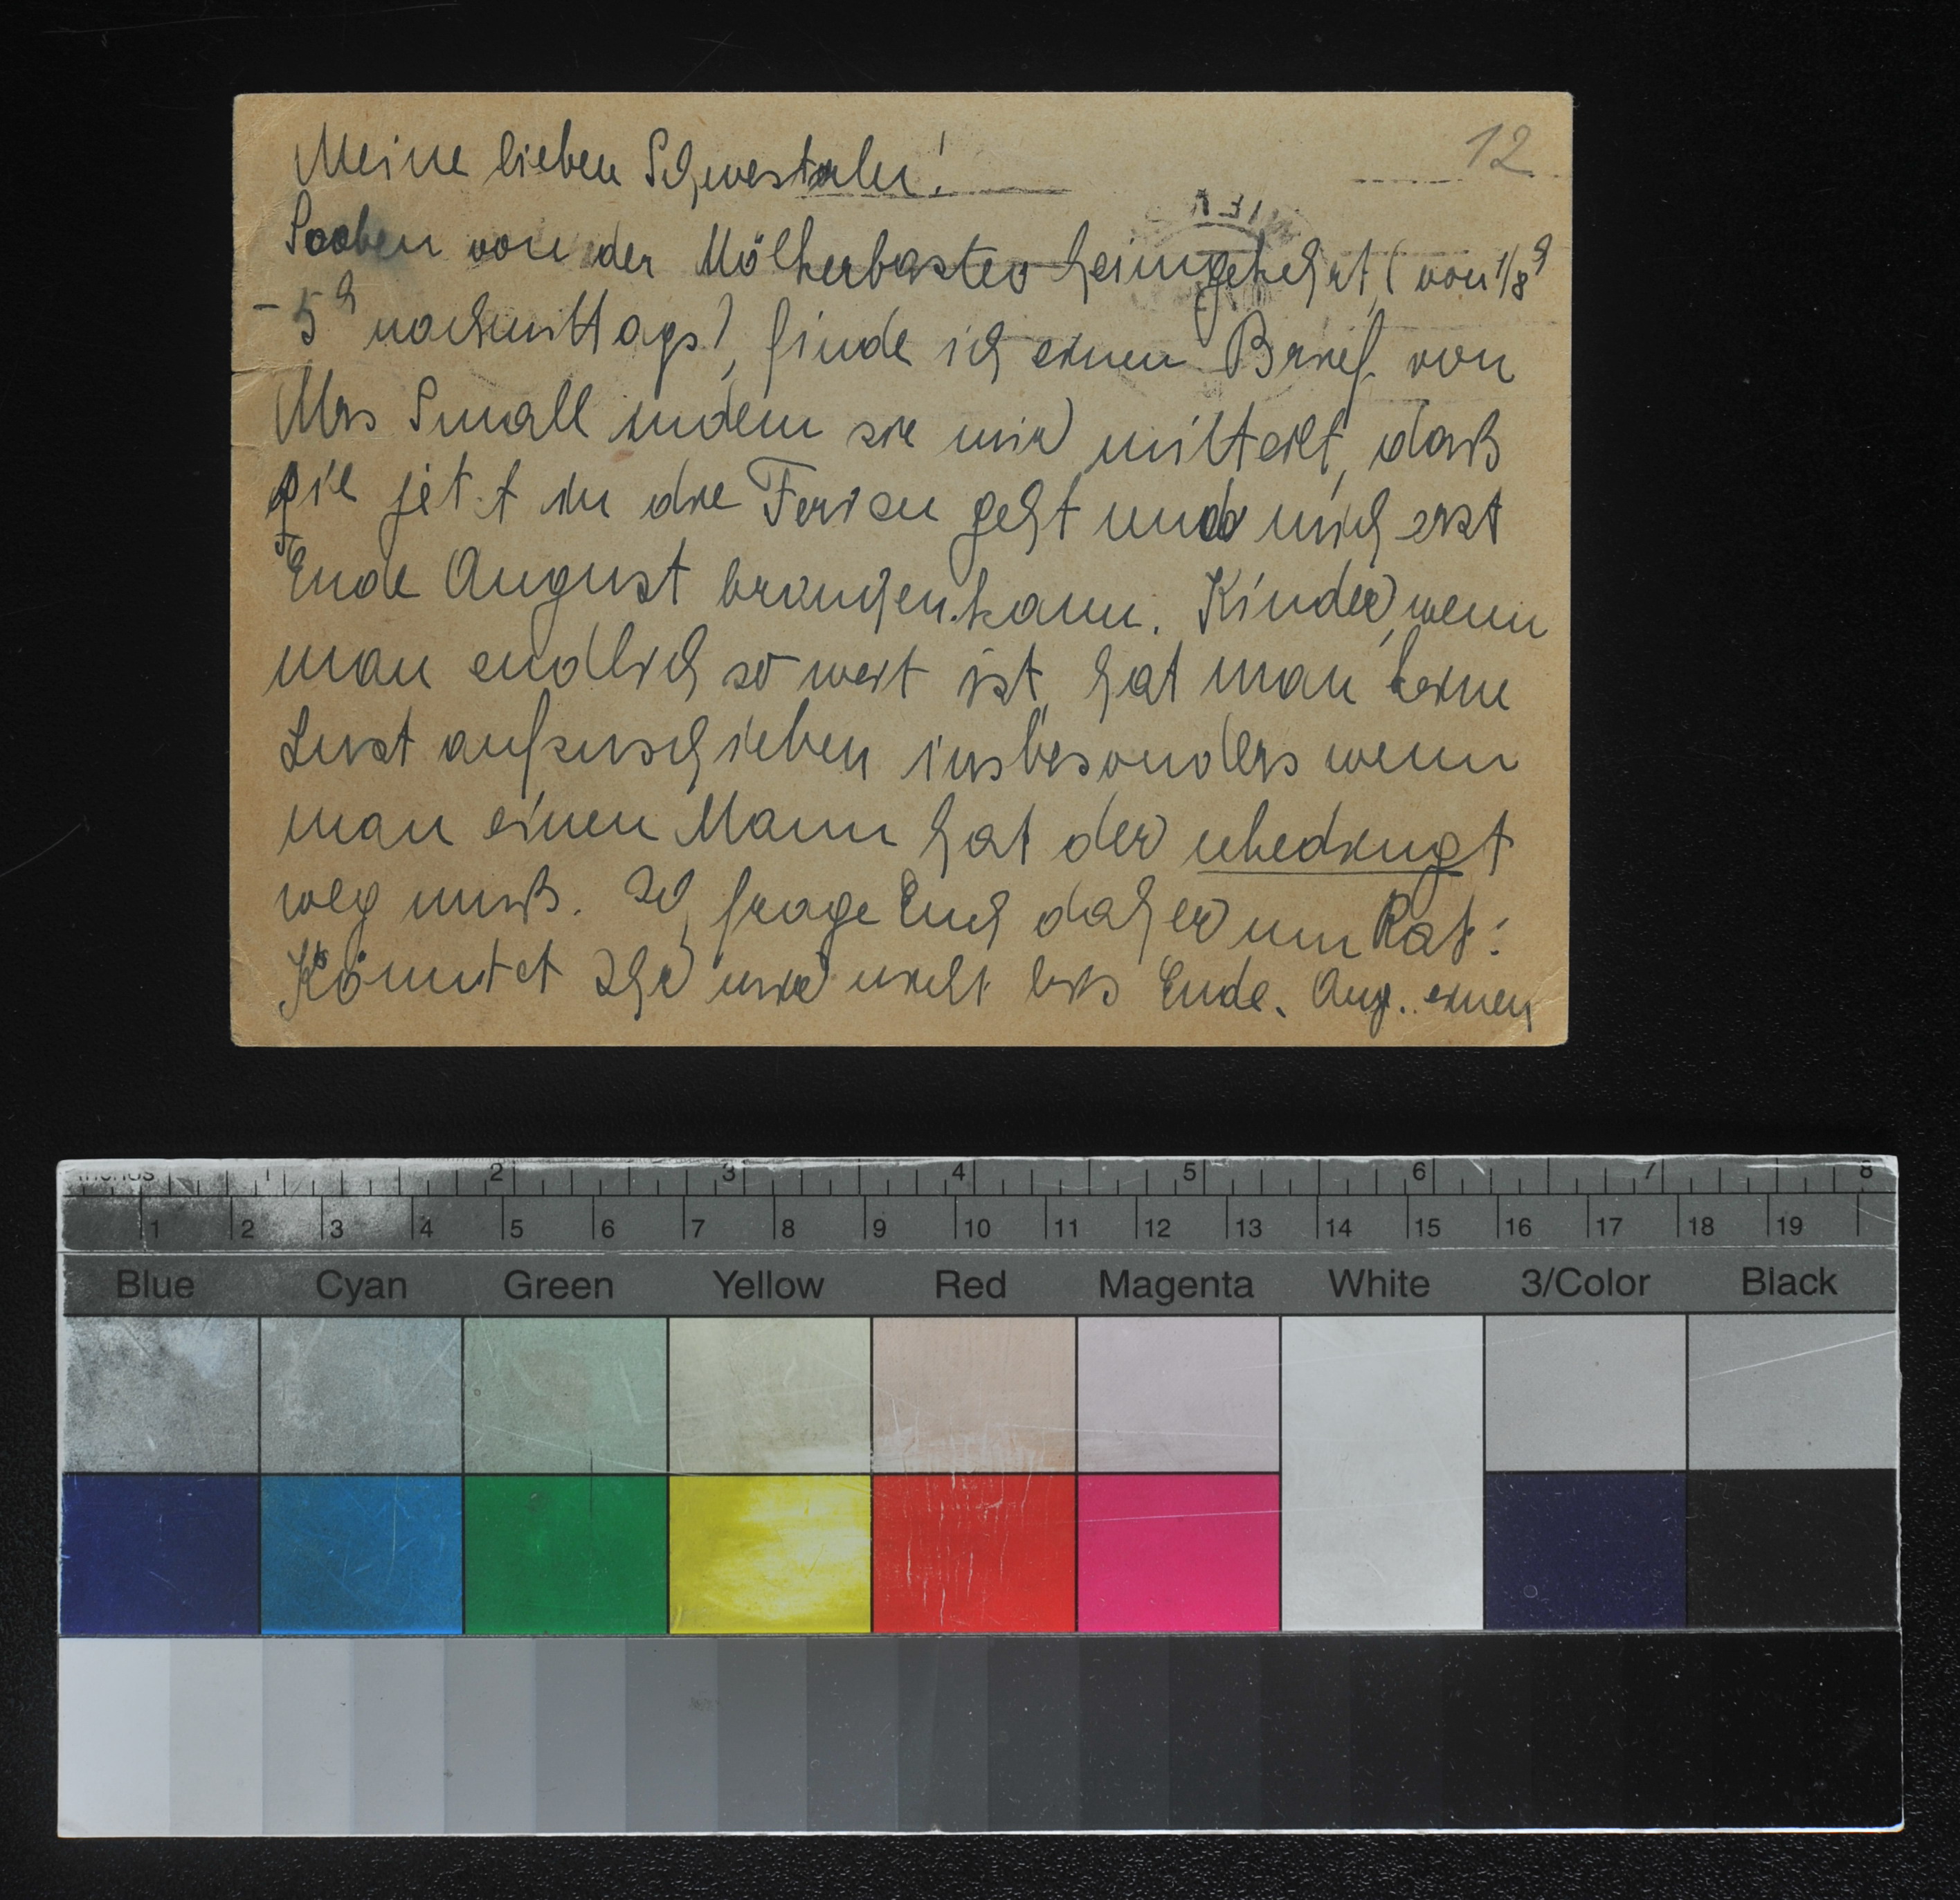 12
Meine lieben Schwesterln!
Soeben von der Mölkerbastei heimgekehrt, (von 1/8h
- 5h nachmittags), finde ich einen Brief von
Mrs Small indem sie mir mitteilt, daß
sie jetzt in die Ferien geht und mich erst
Ende August bringen kann. Kinder, wenn
man endlich so weit ist, hat man keine
Lust aufzuschieben insbesonders wenn
man einen Mann hat der unbedingt
weg muß. Ich frage Euch daher um Rat:
Könntet Ihr mir nicht bis Ende. Aug. einen
inches 1 2 3 4 5 6 7 8
1 2 3 4 5 6 7 8 9 10 11 12 13 14 15 16 17 18 19
Blue Cyan Green Yellow Red Magenta White 3/Color Black